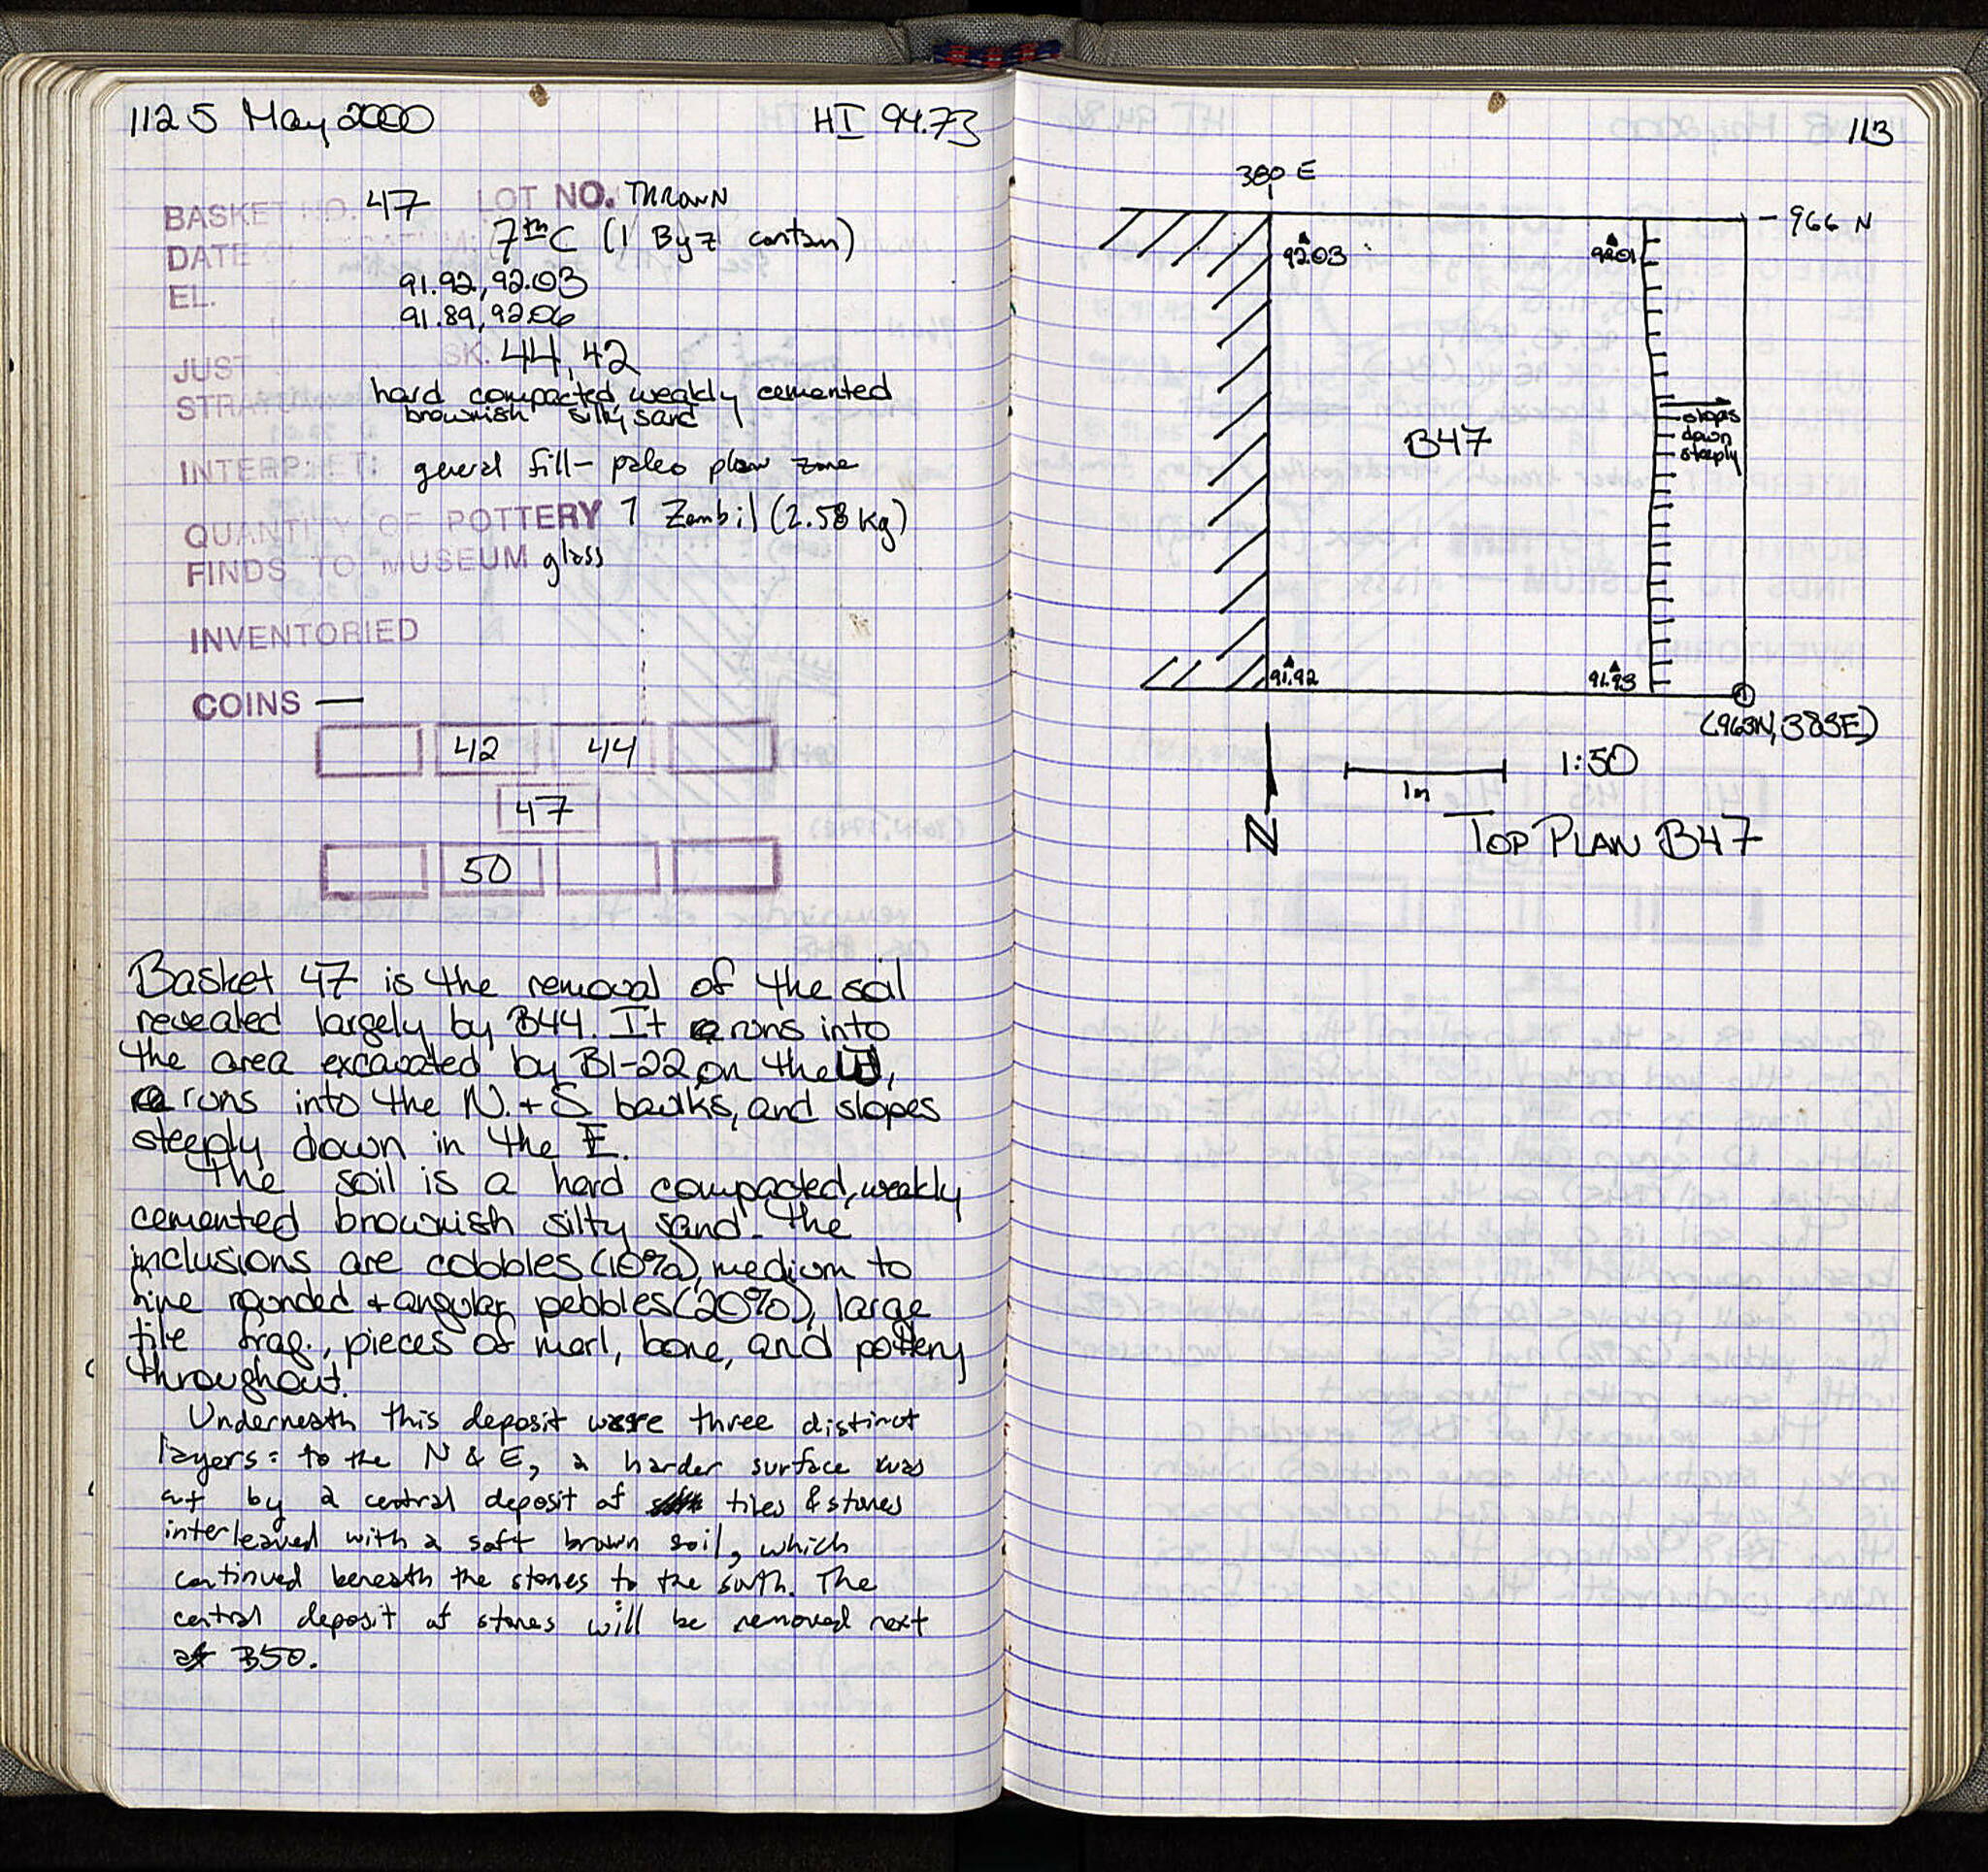 112 5 May 2000 HI 94.73
BASKET NO. 47 LOT NO. THROWN
DATE 7th C (1 Byz contam)
EL. 91.92, 92.03
91.89, 92.06
JUST SK. 44, 42
STRAT hard compacted weakly cemented
brownish silty sand
INTERPRET: general fill - paleo plow zone
QUANTITY OF POTTERY 1 Zembil (2.58 kg)
FINDS TO MUSEUM glass
INVENTORIED
COINS —
42 44
47
50
Basket 47 is the removal of the soil
revealed largely by B44. It runs into
the area excavated by B1-22 on the W,
runs into the N. + S baulks, and slopes
steeply down in the E.
The soil is a hard compacted, weakly
cemented brownish silty sand. The
inclusions are cobbles (10%), medium to
fine rounded + angular pebbles (20%), large
tile frag., pieces of marl, bone, and pottery
throughout.
Underneath this deposit were three distinct
layers: to the N & E, a harder surface was
cut by a central deposit of tiles & stones
interleaved with a soft brown soil, which
continued beneath the stones to the south. The
central deposit of stones will be removed next
as B50.
113
380 E
- 966 N
92.03 92.01
slopes
down
steeply
B47
91.92 91.93
(963N, 383E)
1:50
1m
N
TOP PLAN B47